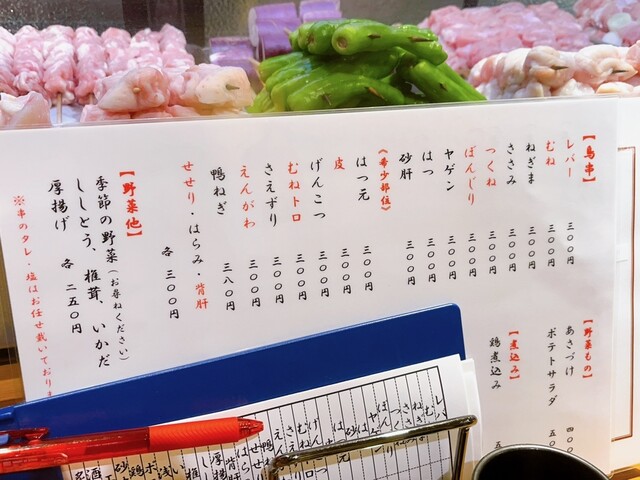 【鳥串】
レバー 三〇〇円
むね 三〇〇円
ねぎま 三〇〇円
ささみ 三〇〇円
つくね 三〇〇円
ぼんじり 三〇〇円
ヤゲン 三〇〇円
はつ 三〇〇円
砂肝 三〇〇円
《希少部位》
はつ元 三〇〇円
皮 三〇〇円
げんこつ 三〇〇円
むねトロ 三〇〇円
さえずり 三〇〇円
えんがわ 三〇〇円
鴨ねぎ 三八〇円
せせり・はらみ・背肝 各 三〇〇円
【野菜他】
季節の野菜(お尋ねください)
ししとう、椎茸、いかだ
厚揚げ 各 二五〇円
※串のタレ・塩はお任せ戴いておりま
【野菜もの】
あさづけ 四〇〇
ポテトサラダ 五〇
【煮込み】
鶏煮込み 五
レバー
むね
ささみ
つくね
ぼん
ヤゲン
はつ
砂
はつ元
げんこ
さえず
えん
鴨
せせ
はら
背肝